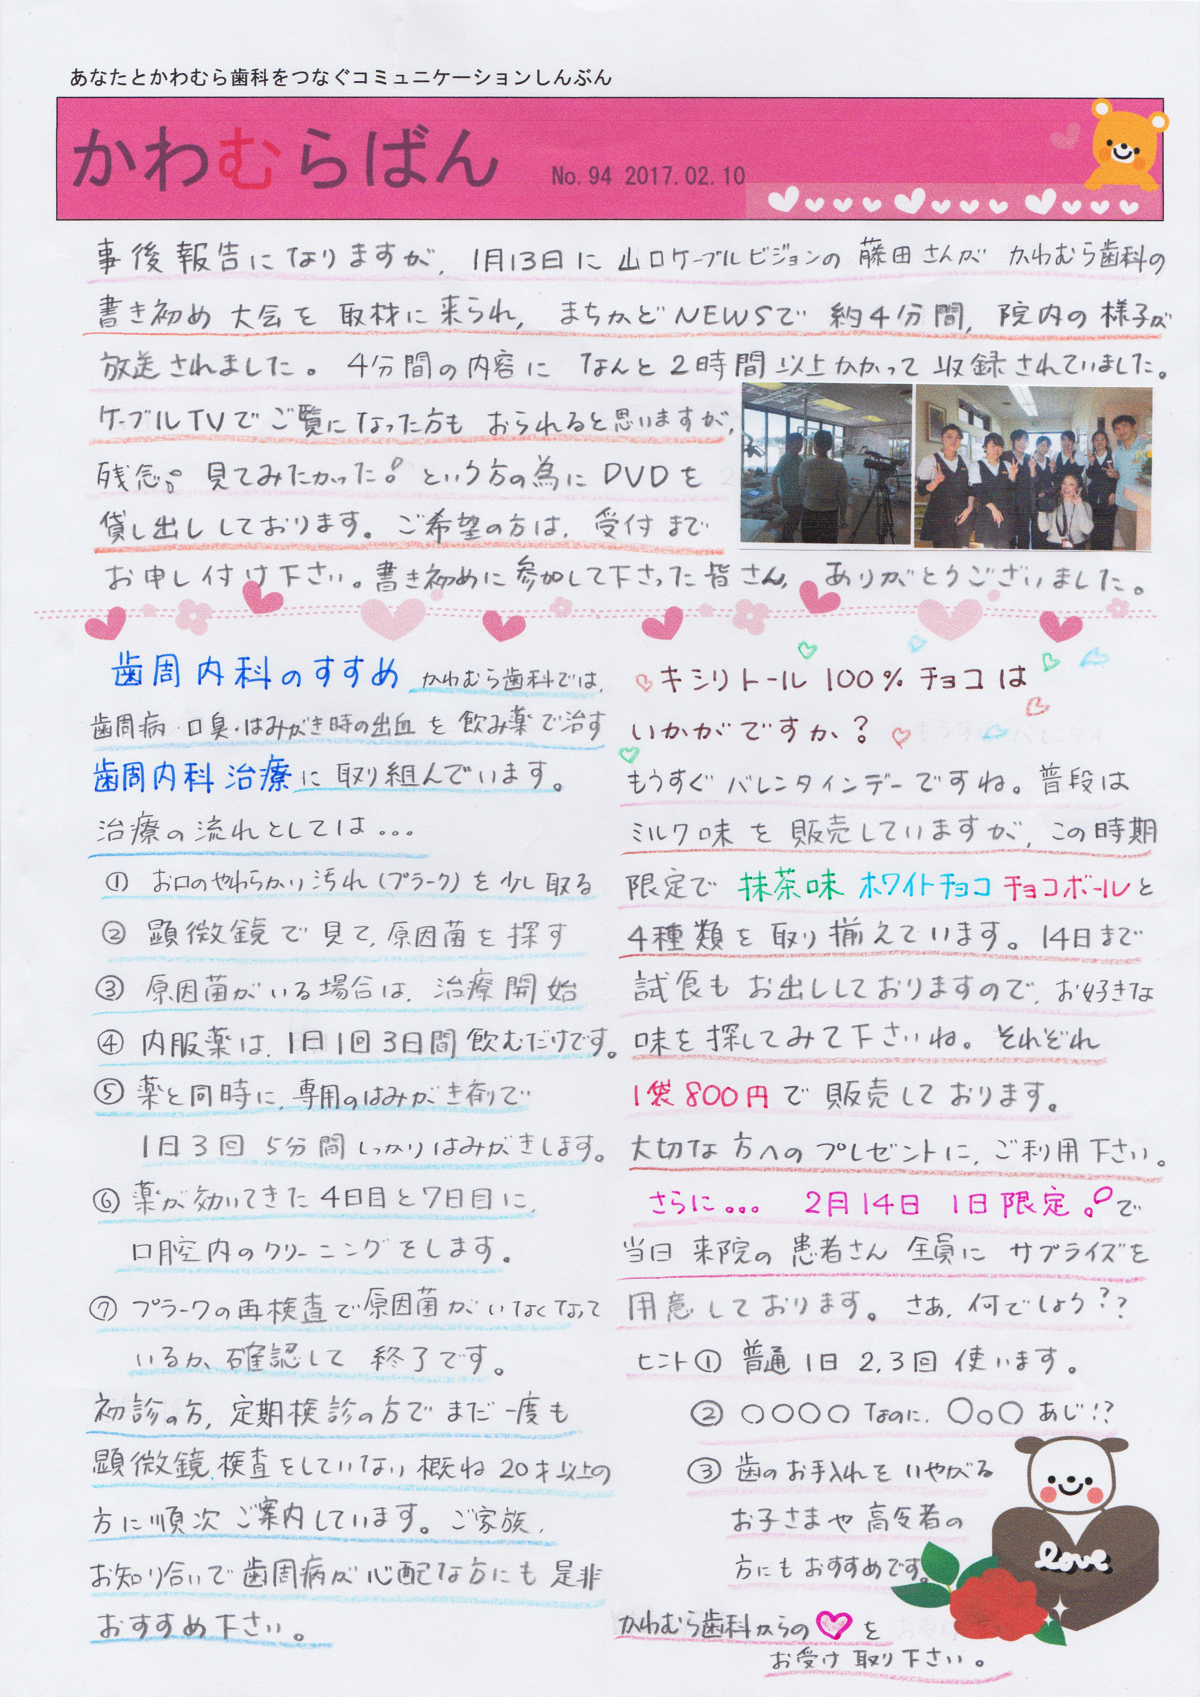 あなたとかわむら歯科をつなぐコミュニケーションしんぶん
かわむらばん No.94 2017.02.10
事後報告になりますが、1月13日に山口ケーブルビジョンの藤田さんがかわむら歯科の
書き初め大会を取材に来られ、まちかどNEWSで約4分間、院内の様子が
放送されました。4分間の内容になんと2時間以上かかって収録されていました。
ケーブルTVでご覧になった方もおられると思いますが、
残念。見てみたかった!という方の為にDVDを
貸し出ししております。ご希望の方は、受付まで
お申し付け下さい。書き初めに参加して下さった皆さん、ありがとうございました。
歯周内科のすすめ かわむら歯科では、
歯周病・口臭・はみがき時の出血を飲み薬で治す
歯周内科治療に取り組んでいます。
治療の流れとしては...
① お口のやわらかい汚れ(プラーク)を少し取る
② 顕微鏡で見て、原因菌を探す
③ 原因菌がいる場合は、治療開始
④ 内服薬は、1日1回3日間飲むだけです。
⑤ 薬と同時に、専用のはみがき剤で
1日3回5分間しっかりはみがきします。
⑥ 薬が効いてきた4日目と7日目に、
口腔内のクリーニングをします。
⑦ プラークの再検査で原因菌がいなくなって
いるか、確認して終了です。
初診の方、定期検診の方でまだ一度も
顕微鏡検査をしていない概ね20才以上の
方に順次ご案内しています。ご家族、
お知り合いで歯周病が心配な方にも是非
おすすめ下さい。
キシリトール100%チョコは
いかがですか?
もうすぐバレンタインデーですね。普段は
ミルク味を販売していますが、この時期
限定で 抹茶味 ホワイトチョコ チョコボールと
4種類を取り揃えています。14日まで
試食もお出ししておりますので、お好きな
味を探してみて下さいね。それぞれ
1袋800円で販売しております。
大切な方へのプレゼントに、ご利用下さい。
さらに... 2月14日 1日限定!で
当日来院の患者さん全員にサプライズを
用意しております。さあ、何でしょう??
ヒント① 普通1日2,3回使います。
② ○○○○なのに、○○○あじ!?
③ 歯のお手入れをいやがる
お子さまや高令者の
方にもおすすめです。
love
かわむら歯科からの♡を
お受け取り下さい。